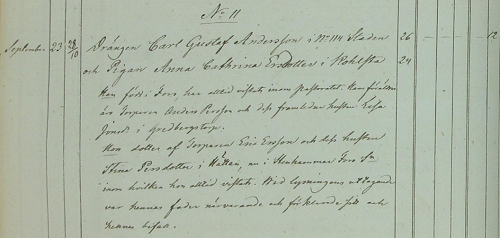 No 11
September 23 28/10 Drängen Carl Gustaf Andersson i No 114 Staden 26 12
och Pigan Anna Cathrina Ersdotter i Wohlsta 24
Han född i Fors, har alltid vistats inom pastoratet. Han föräldrar
äro Torparen Anders Persson och dess framlidne hustru Lisa
Jönsd: i Gredbergstorp.
Hon dotter af Torparen Eric Ersson och dess hustru
Stina Persdotter i Hättan, nu i Stenhammar Fors Sn
inom hvilken hon alltid vistats. Wid lysningens uttagande
var hennes fader närvarande och förklarade sitt och
hennes bifall.